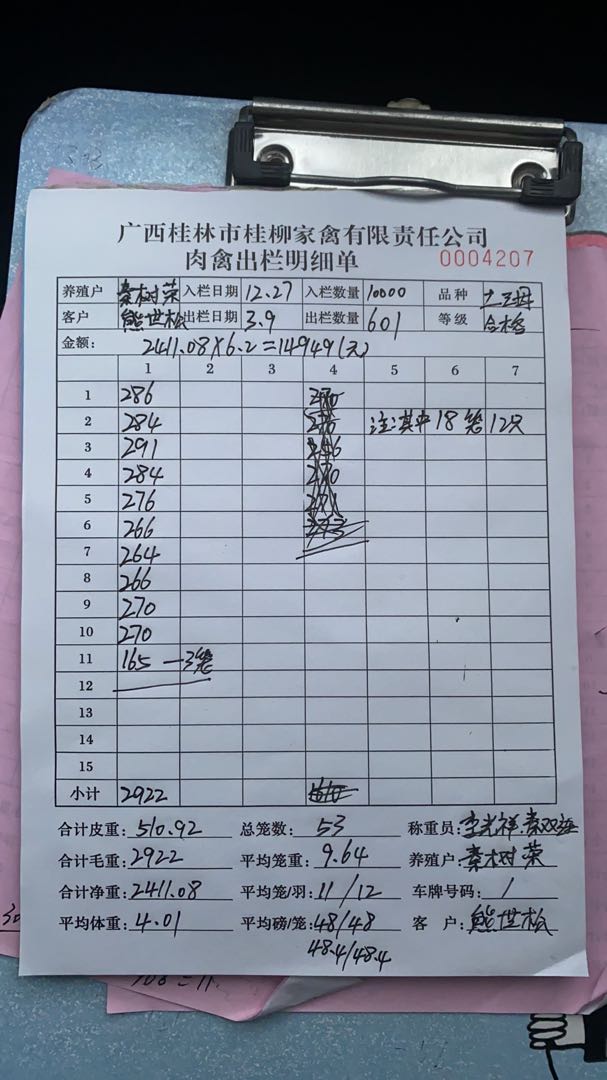 广西桂林市桂柳家禽有限责任公司
肉禽出栏明细单 0004207
养殖户 秦树荣 入栏日期 12.27 入栏数量 10000 品种 土三母
客户 熊世松 出栏日期 3.9 出栏数量 601 等级 合格
金额: 2411.08×6.2=14949(元)
1 2 3 4 5 6 7
1 286
2 284 注:其中18笼12只
3 291
4 284
5 276
6 266
7 264
8 266
9 270
10 270
11 165 —3笼
12
13
14
15
小计 2922
合计皮重: 510.92 总笼数: 53 称重员: 李光祥
合计毛重: 2922 平均笼重: 9.64 养殖户: 秦树荣
合计净重: 2411.08 平均笼/羽: 11/12 车牌号码: /
平均体重: 4.01 平均磅/笼: 48/48 客户: 熊世松
48.4/48.4